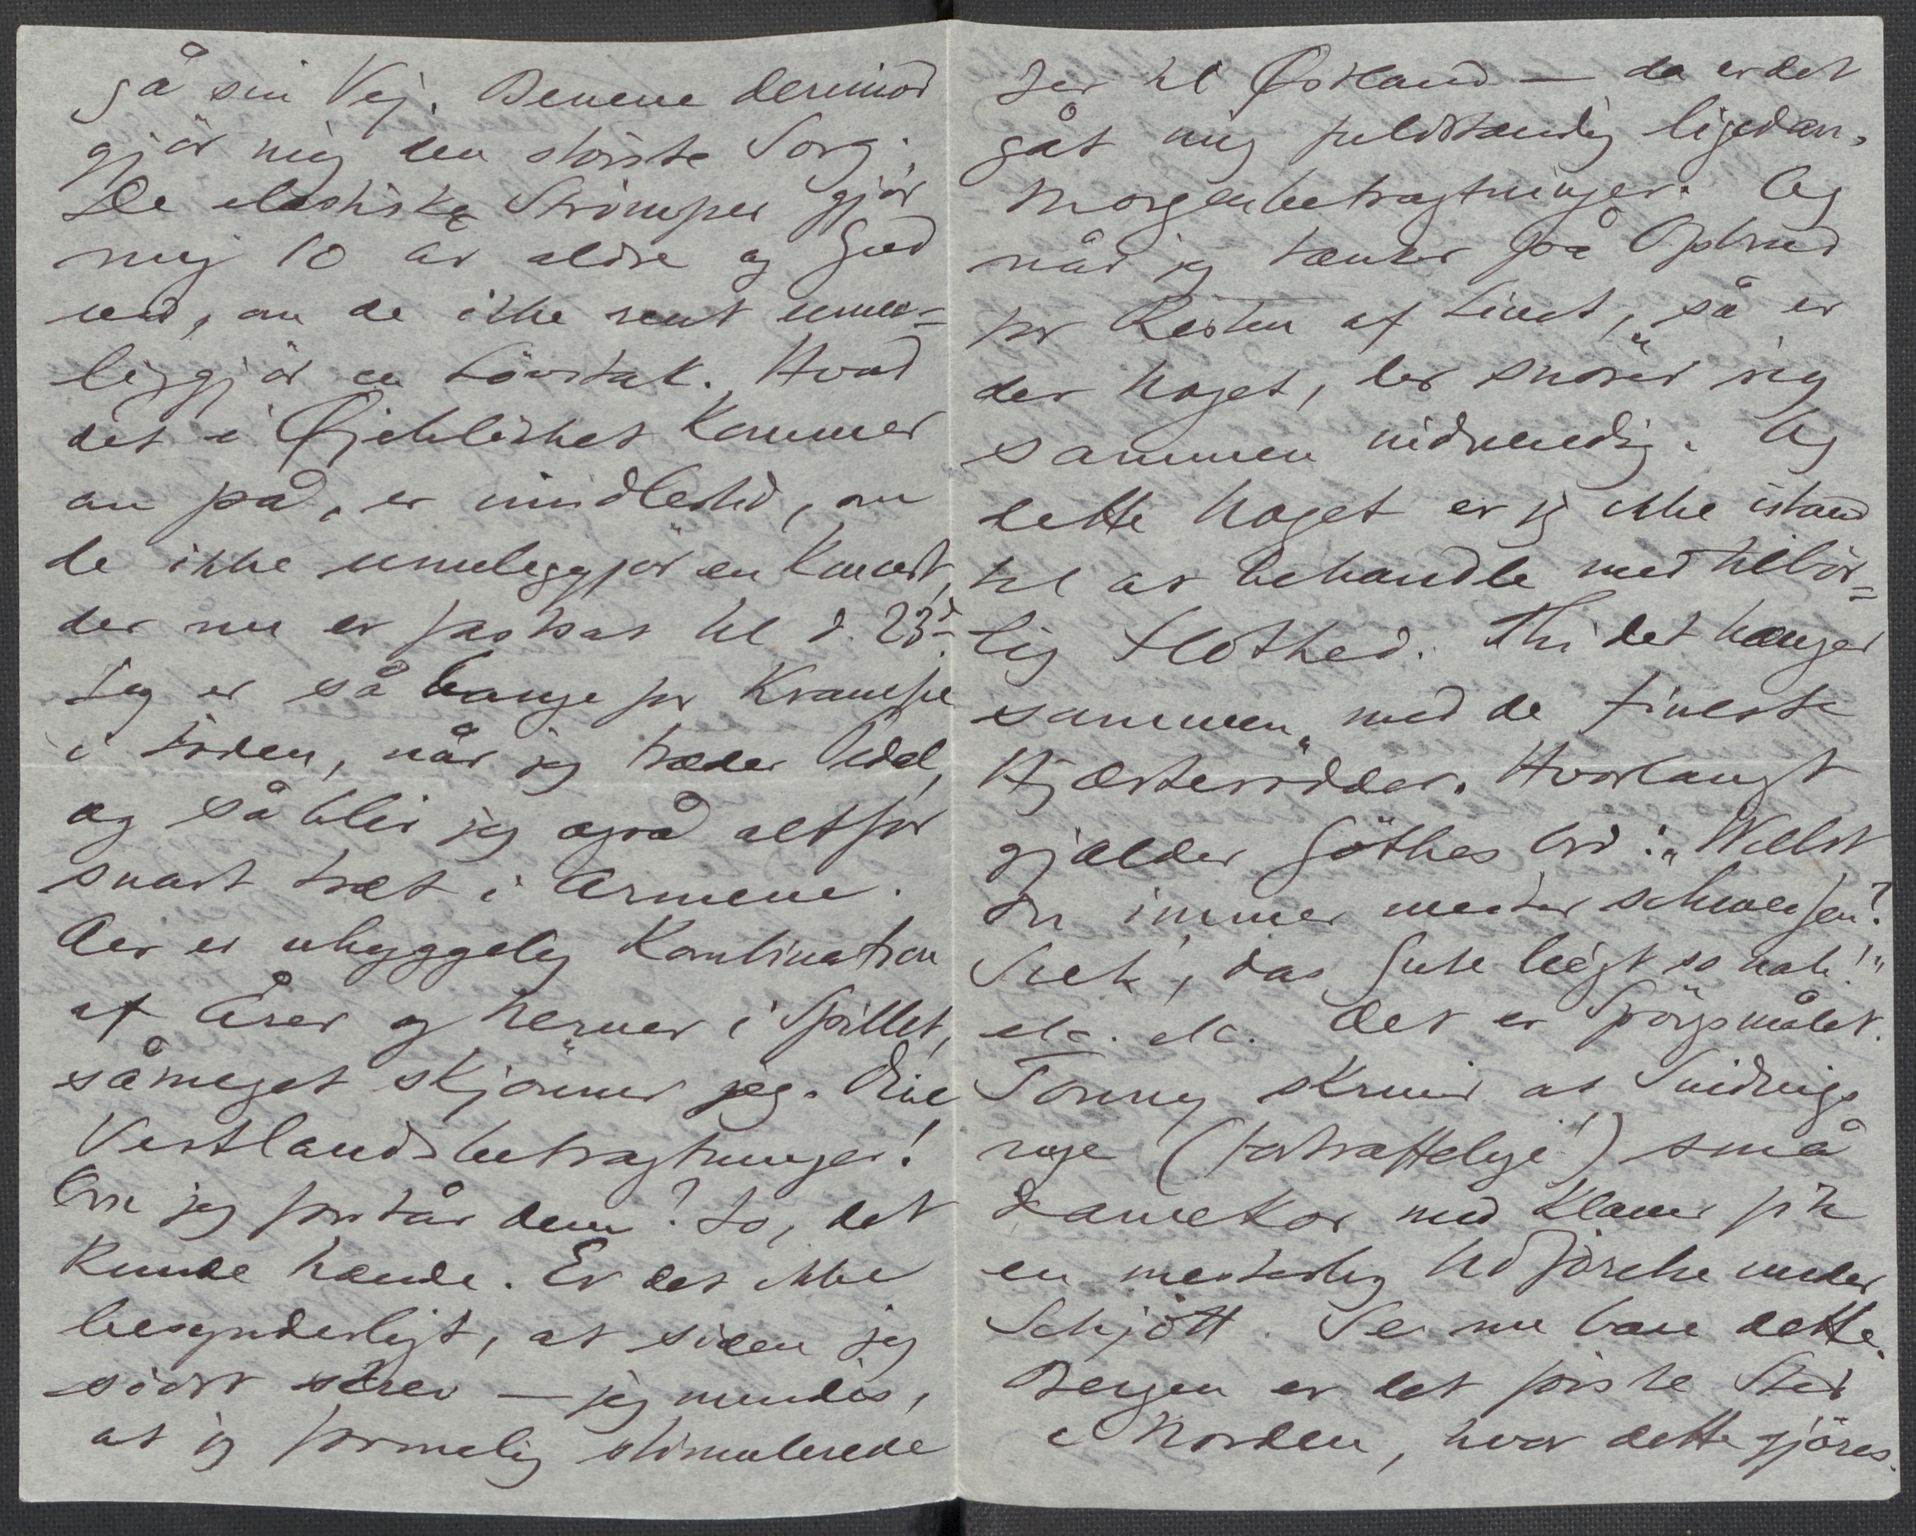 gå sin Vej. Benene derimod
gjör mig den störste Sorg.
De elastiske Strömper gjör
mig 10 år ældre og Gud
ved, om de ikke rent umu=
liggjör en Løvstak. Hvad
det i Øjeblikket kommer
an på, er imidlertid, om
de ikke umuliggjör en Koncert,
der nu er fastsat til d. 23d
Jeg er så bange for Krampe
i Foden, når jeg træder Pedal,
og så blir jeg også altfor
snart træt i Armene.
Der er uhyggelig Kombination
af Årer og Nerver i Spillet,
såmeget skjönner jeg. Dine
Vestlandsbetragtninger!
Om jeg forstår dem? Jo, det
kunde hænde. Er det ikke
besynderligt, at siden jeg
sidst skrev — jeg mindes,
at jeg formelig stimulerede
Jer til Østland — da er det
gåt mig fuldstændig ligedan.
Morgenbetragtninger. Og
når jeg tænker på Opbrud
for Resten af Livet, så er
der Noget, der snörer sig
sammen indvendig. Og
dette Noget er jeg ikke istand
til at behandle med tilbör=
lig Flothed. Thi det hænger
sammen med de fineste
Hjærterödder. Hvorlangt
gjælder Göthes Ord: „Willst
du immer weiter schweifen?
Sieh, das Gute liegt so nah!"
etc. etc. Det er Spörgsmålet.
Tonny skriver at Sindings
nye (fortræffelige!) små
Damekor med Klaver fik
en mesterlig Udförelse under
Schjött. Se nu bare dette.
Bergen er det förste Sted
i Norden, hvor dette gjöres.